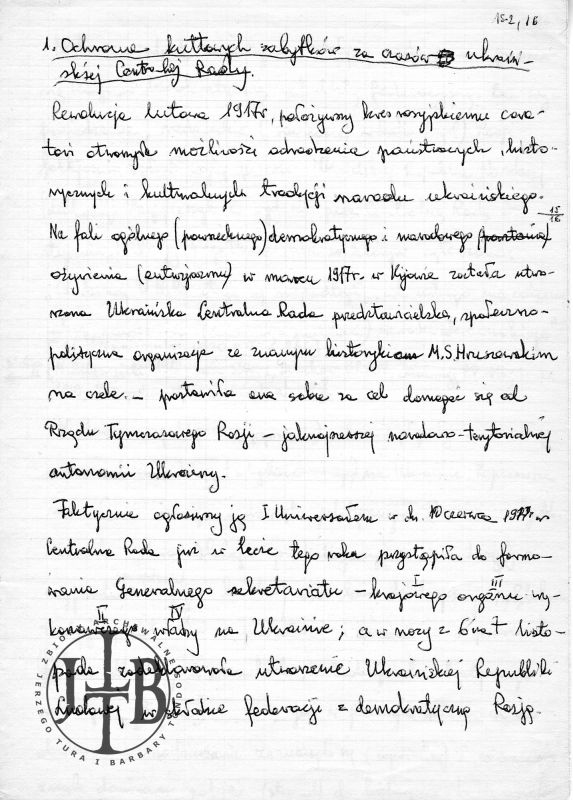 15-2, 16
1. Ochrona kultowych zabytków za czasów ukraiń-
skiej Centralnej Rady.
Rewolucja lutowa 1917r, położywszy kres rosyjskiemu cara-
towi otworzyła możliwości odrodzenia państwowych, histo-
rycznych i kulturalnych tradycji narodu ukraińskiego.
15
16
Na fali ogólnego (powszechnego) demokratycznego i narodowego (powstania)
ożywienia (entuzjazmu) w marcu 1917r. w Kijowie została utwo-
rzona Ukraińska Centralna Rada przedstawicielska, społeczno-
polityczna organizacja ze znanym historykiem M.S. Hruszewskim
na czele. – postawiła ona sobie za cel domagać się od
Rządu Tymczasowego Rosji – jaknajszerszej narodowo-terytorialnej
autonomii Ukrainy.
Faktycznie ogłosiwszy ją I Uniwersałem w dn. 10 czerwca 1917r
Centralna Rada już w lecie tego roku przystąpiła do formo-
wania Generalnego sekretariatu – krajowego organu wy-
I III
konawczej władzy na Ukrainie; a w nocy z 6 na 7 listo-
II IV
pada zadeklarowała utworzenie Ukraińskiej Republiki
Ludowej w składzie federacji z demokratyczną Rosją.
ZBIORY ARCHIWALNE
JERZEGO TURA I BARBARY TONDOS
JTB